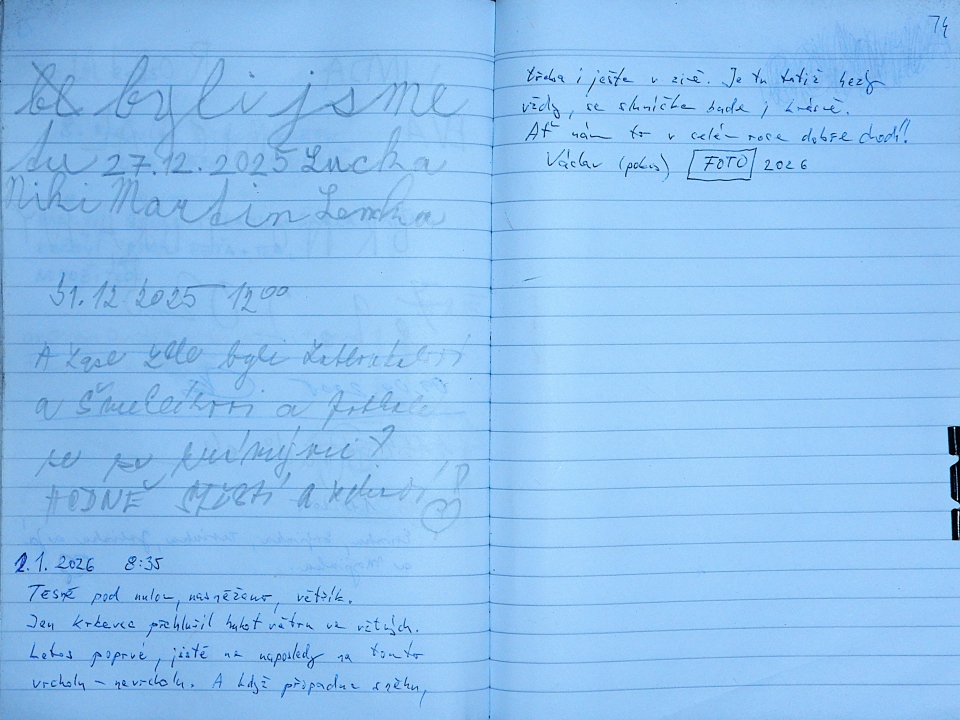 byli jsme
tu 27.12.2025 Lucka
Niki Martin Lenka
31.12 2025 12⁰⁰
A zase zde byli
a a
se po
HODNĚ ŠTĚSTÍ a zdraví!
2.1. 2026 8:35
TĚSNĚ pod nulou, nasněženo, větřík.
Jen krkavce přehlušil hukot větru ve větvích.
Letos poprvé, jistě ne naposledy na tomto
vrcholu - nevrcholu. A když připadne sněhu,
74
třeba i ještě v zimě. Je tu totiž hezky
vždy, se sluníčkem bude i krásně.
Ať nám to v celém roce dobře chodí!
Václav FOTO 2026